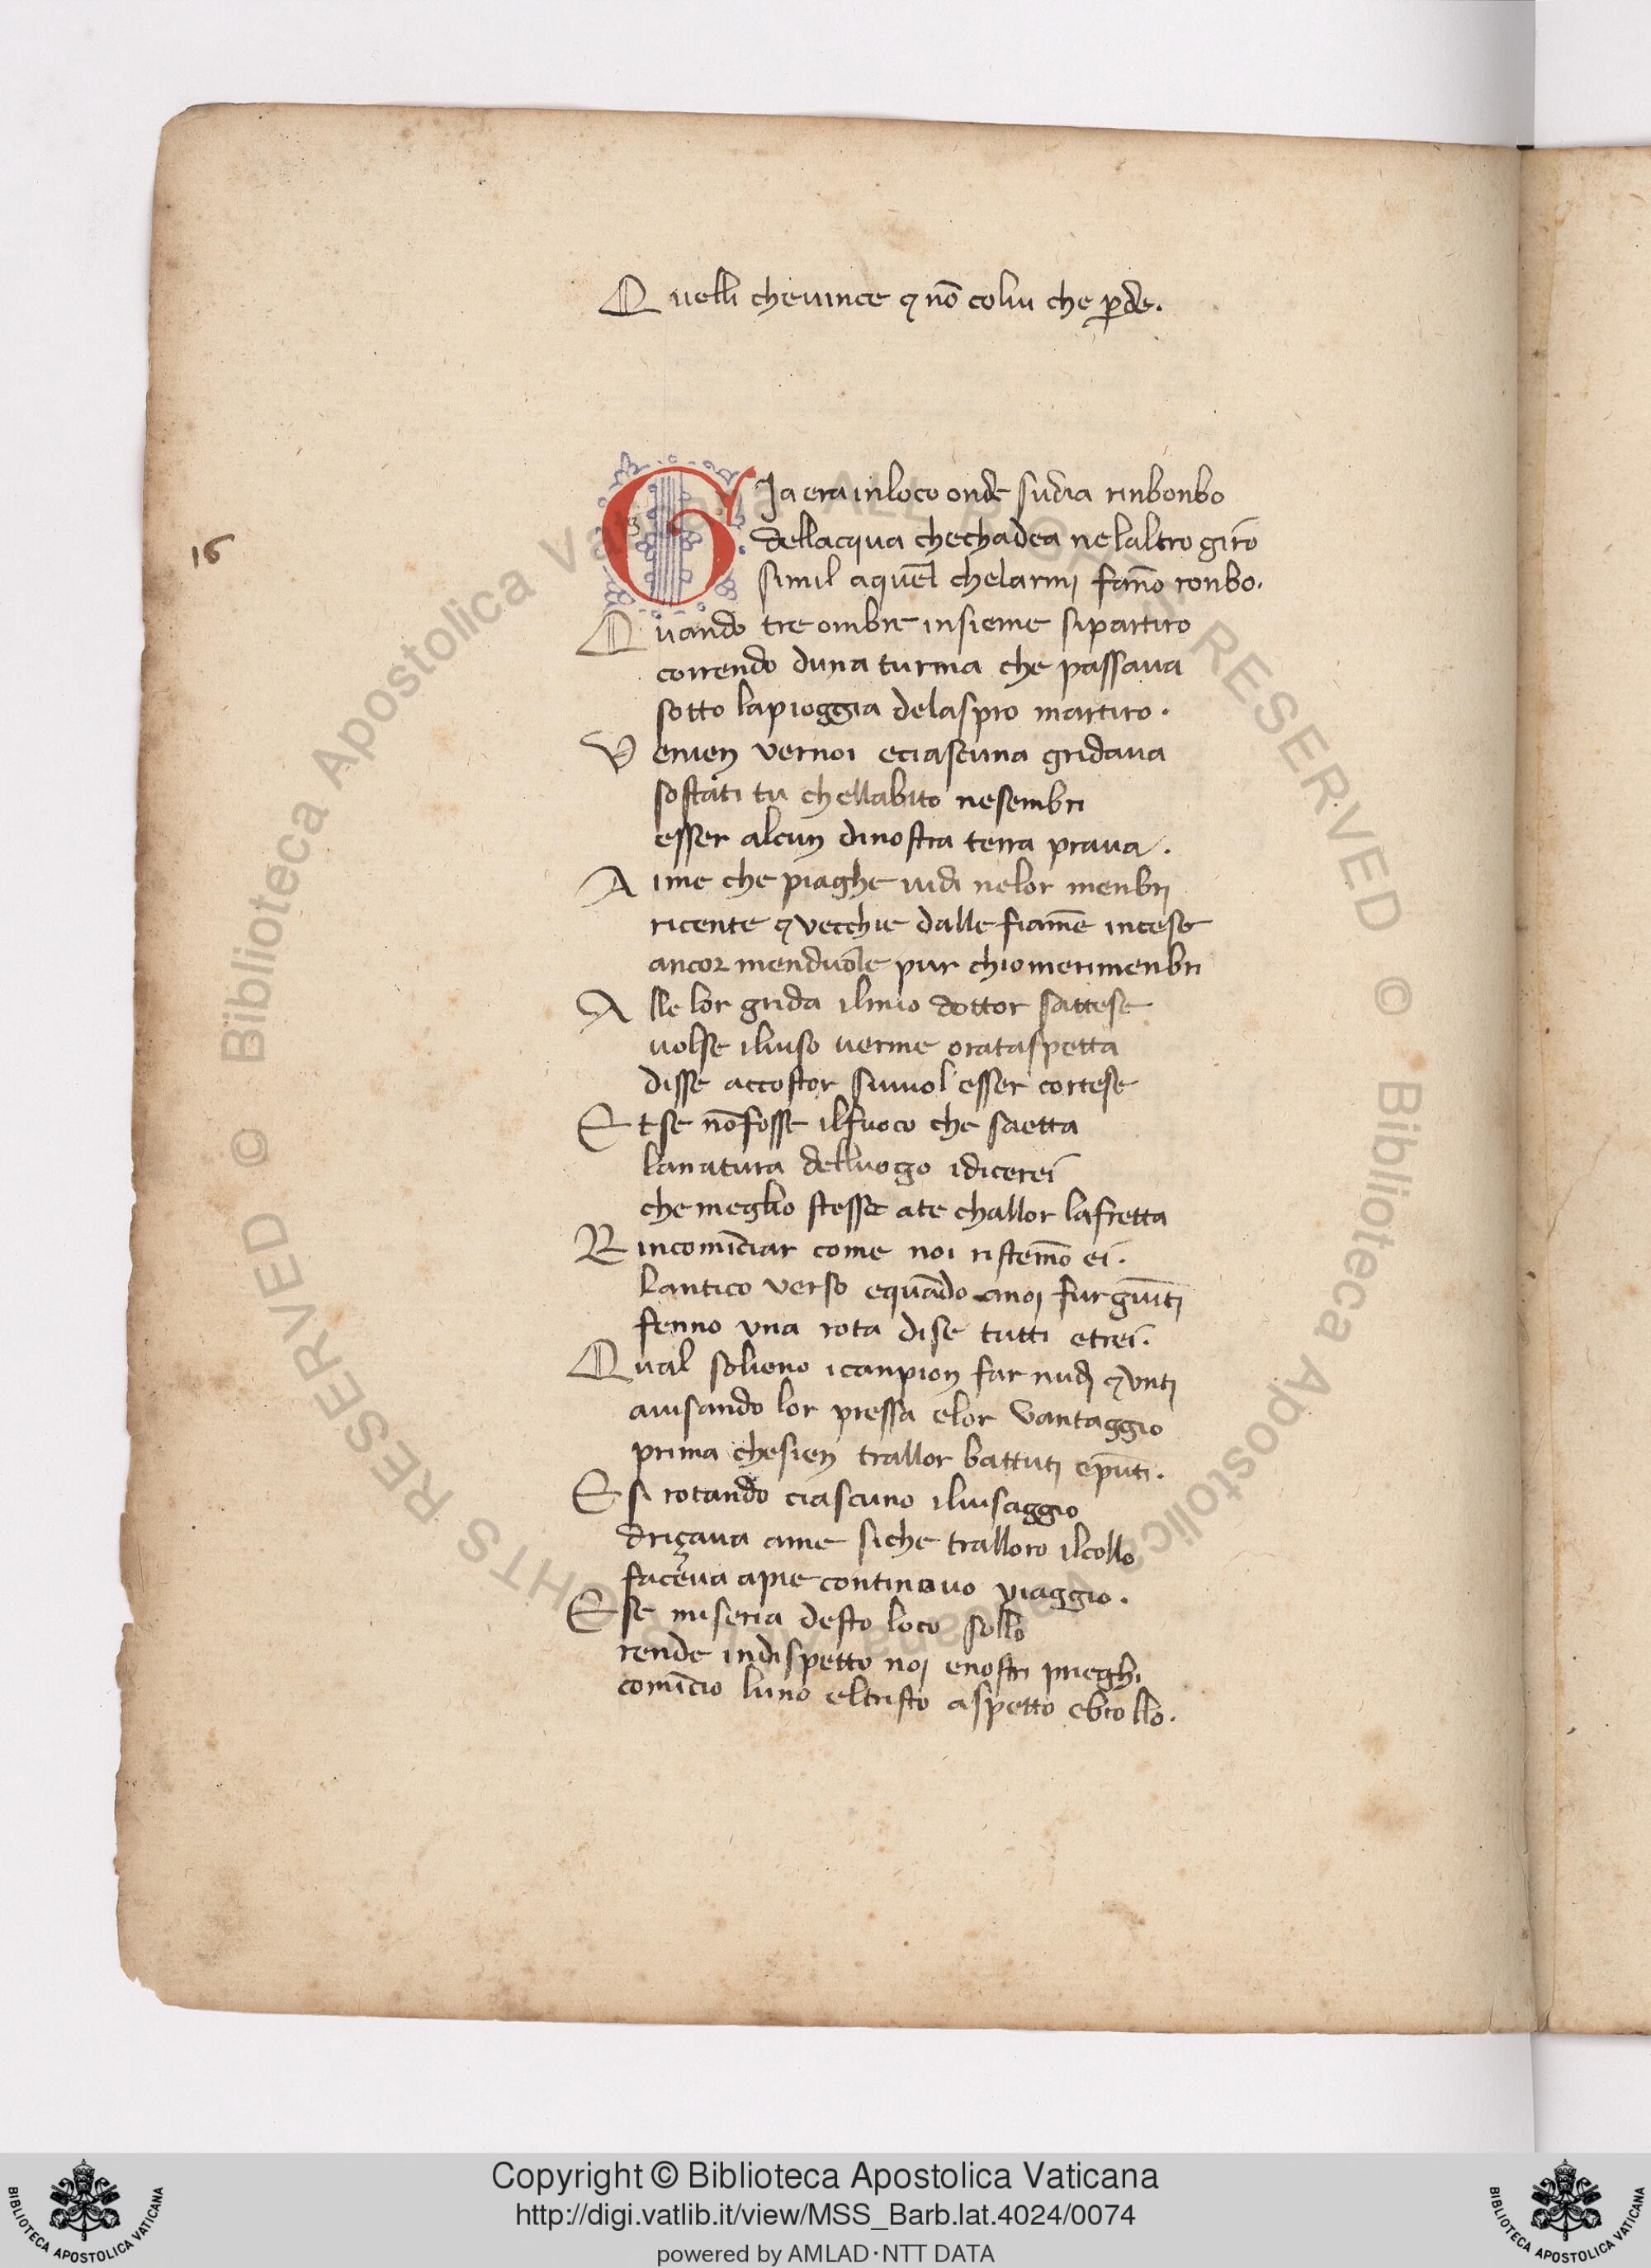 Quelli che uince ⁊ nō coluu che ꝑde.
16
GIa era inloco onde sudia rinbonbo
dellacqua chechadea nelaltro girō
simil aquel chelarnj fanno ronbo.
Quando tre ombre insieme sipartiro
correndo duna turma che passaua
sotto lapioggia delaspro martiro.
Venien vernoi eciascuna gridaua
sostati tu chellabito nesembri
esser alcun dinostra terra praua.
Aime che piaghe uidi nelor menbri
ricente ⁊ vecchie dalle fiam̄e incese
ancor menduole pur chiomerimenbri
Alle lor grida ilmio dottor sattese
uolse iluiso uerme orataspetta
disse accostor siuuol esser cortese
Et se nōfosse ilfuoco che saetta
lanatura delluogo idicerei
che meglio stesse ate challor lafretta
Rincomīciar come noi ristem̄o ei.
lantico verso equādo anoj fur giūtj
fenno vna rota dise tutti etrei.
Qual solieno icanpion far nudj ⁊ vntj
auisando lor pressa elor vantaggio
prima chesien trallor battutj epūti.
Esi rotando ciascuno iluisaggio
driçaua ame siche tralloro ilcollo
faceua apie continouo viaggio.
Ese miseria desto loco sollo
rende indispetto noj enostri prieghi
comīcio luno eltristo aspetto ebrollo.
© Biblioteca Apostolica Vaticana ALL RIGHTS RESERVED © Biblioteca Apostolica Vaticana ALL RIGHTS RESERVED
Copyright © Biblioteca Apostolica Vaticana
http://digi.vatlib.it/view/MSS_Barb.lat.4024/0074
powered by AMLAD·NTT DATA
BIBLIOTECA APOSTOLICA VATICANA
BIBLIOTECA APOSTOLICA VATICANA